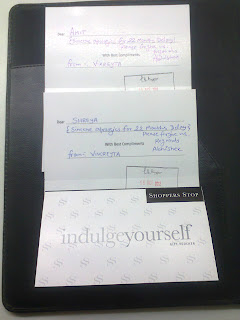 Dear AMIT
(Sincere Apologies for 22 Months Delay)
Please forgive us.
Regards
Abhishek
With Best Compliments
from : VIKAYTA
Dear SURAJYA
(Sincere Apologies for 22 Months Delay)
Please forgive us.
Regards
Abhishek
With Best Compliments
from : VIKAYTA
SHOPPERS STOP
indulgeyourself
GIFT VOUCHER